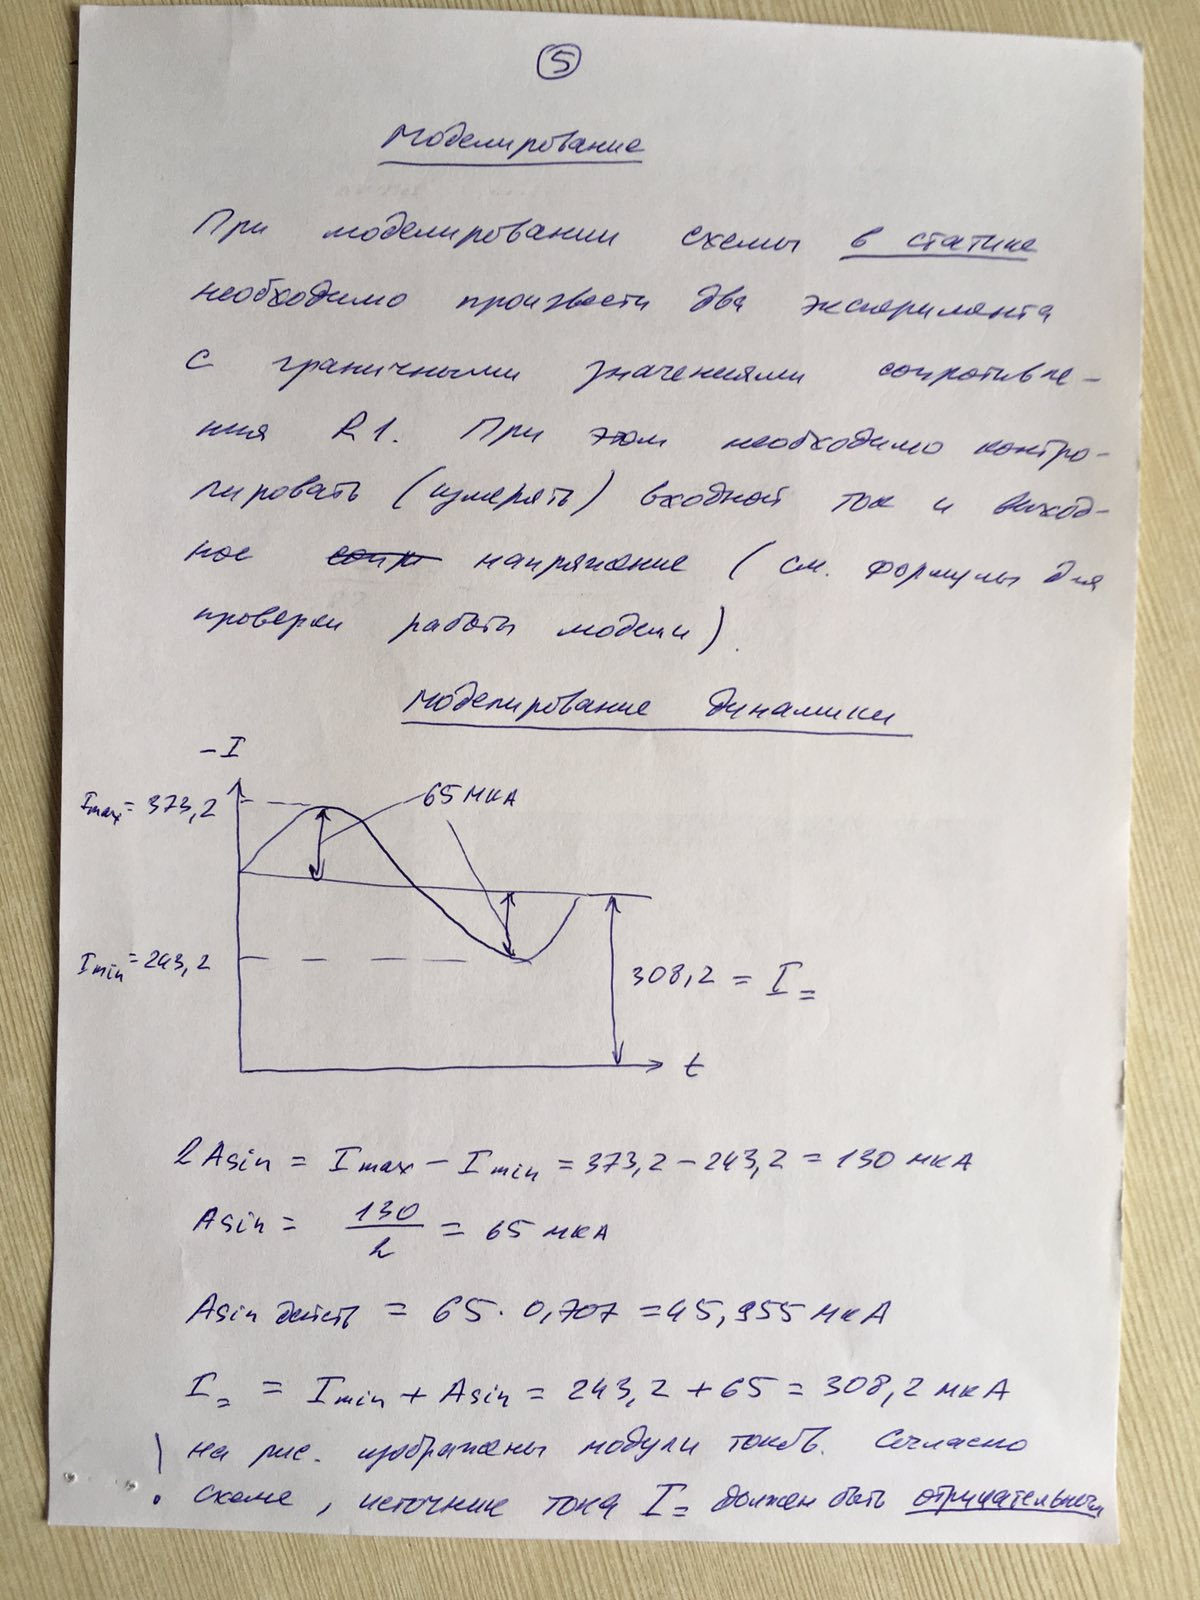 5
Моделирование
При моделировании схемы в статике
необходимо произвести два эксперимента
с граничными значениями сопротивле-
ния R1. При этом необходимо контро-
лировать (измерять) входной ток и выход-
ное сопр напряжение (см. формулы для
проверки работы модели).
Моделирование динамики
-I
Imax = 373,2
65 мкА
Imin = 243,2
308,2 = I=
t
2 Asin = Imax - Imin = 373,2 - 243,2 = 130 мкА
Asin = 130/2 = 65 мкА
Asin действ = 65 · 0,707 = 45,955 мкА
I= = Imin + Asin = 243,2 + 65 = 308,2 мкА
! на рис. изображены модули токов. Согласно
схеме, источник тока I= должен быть отрицательным